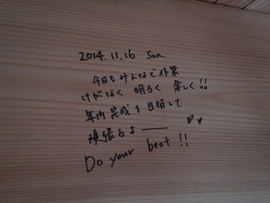 2014.11.16 Sun.
今日もみんなで作業
けがなく 明るく 楽しく!!
年内完成を目指して
頑張るよ――
Do your best!!